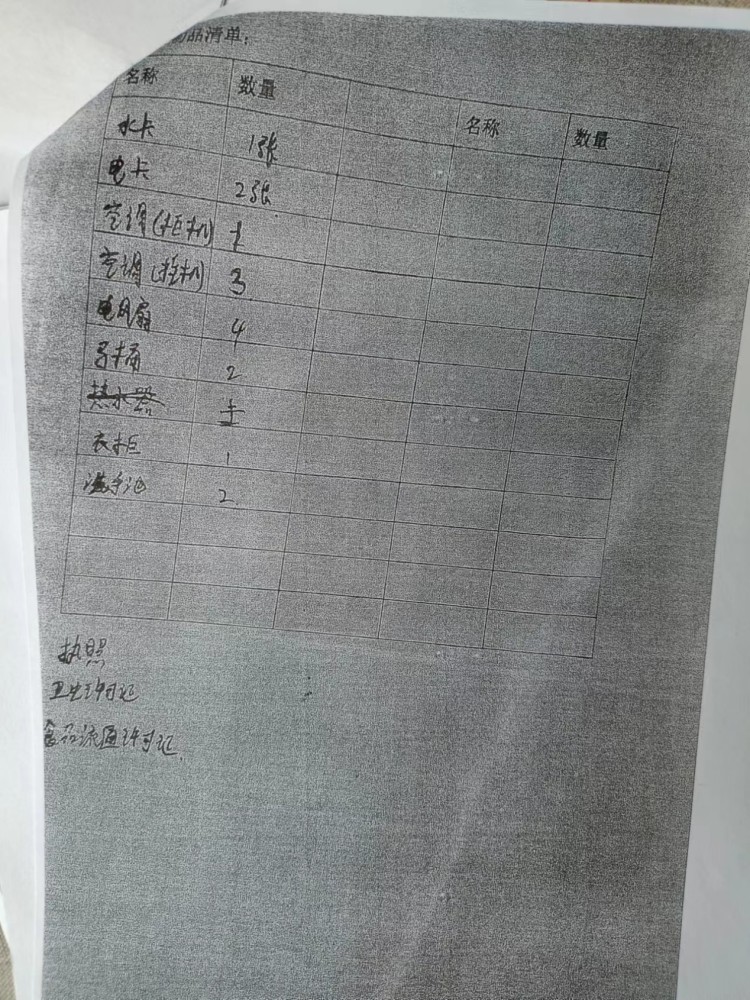 品清单:
名称 数量 名称 数量
水卡 1张
电卡 2张
空调(柜机) 1
空调(挂机) 3
电风扇 4
马桶 2
热水器 1
衣柜 1
洗手池 2
执照
卫生许可证
食品流通许可证